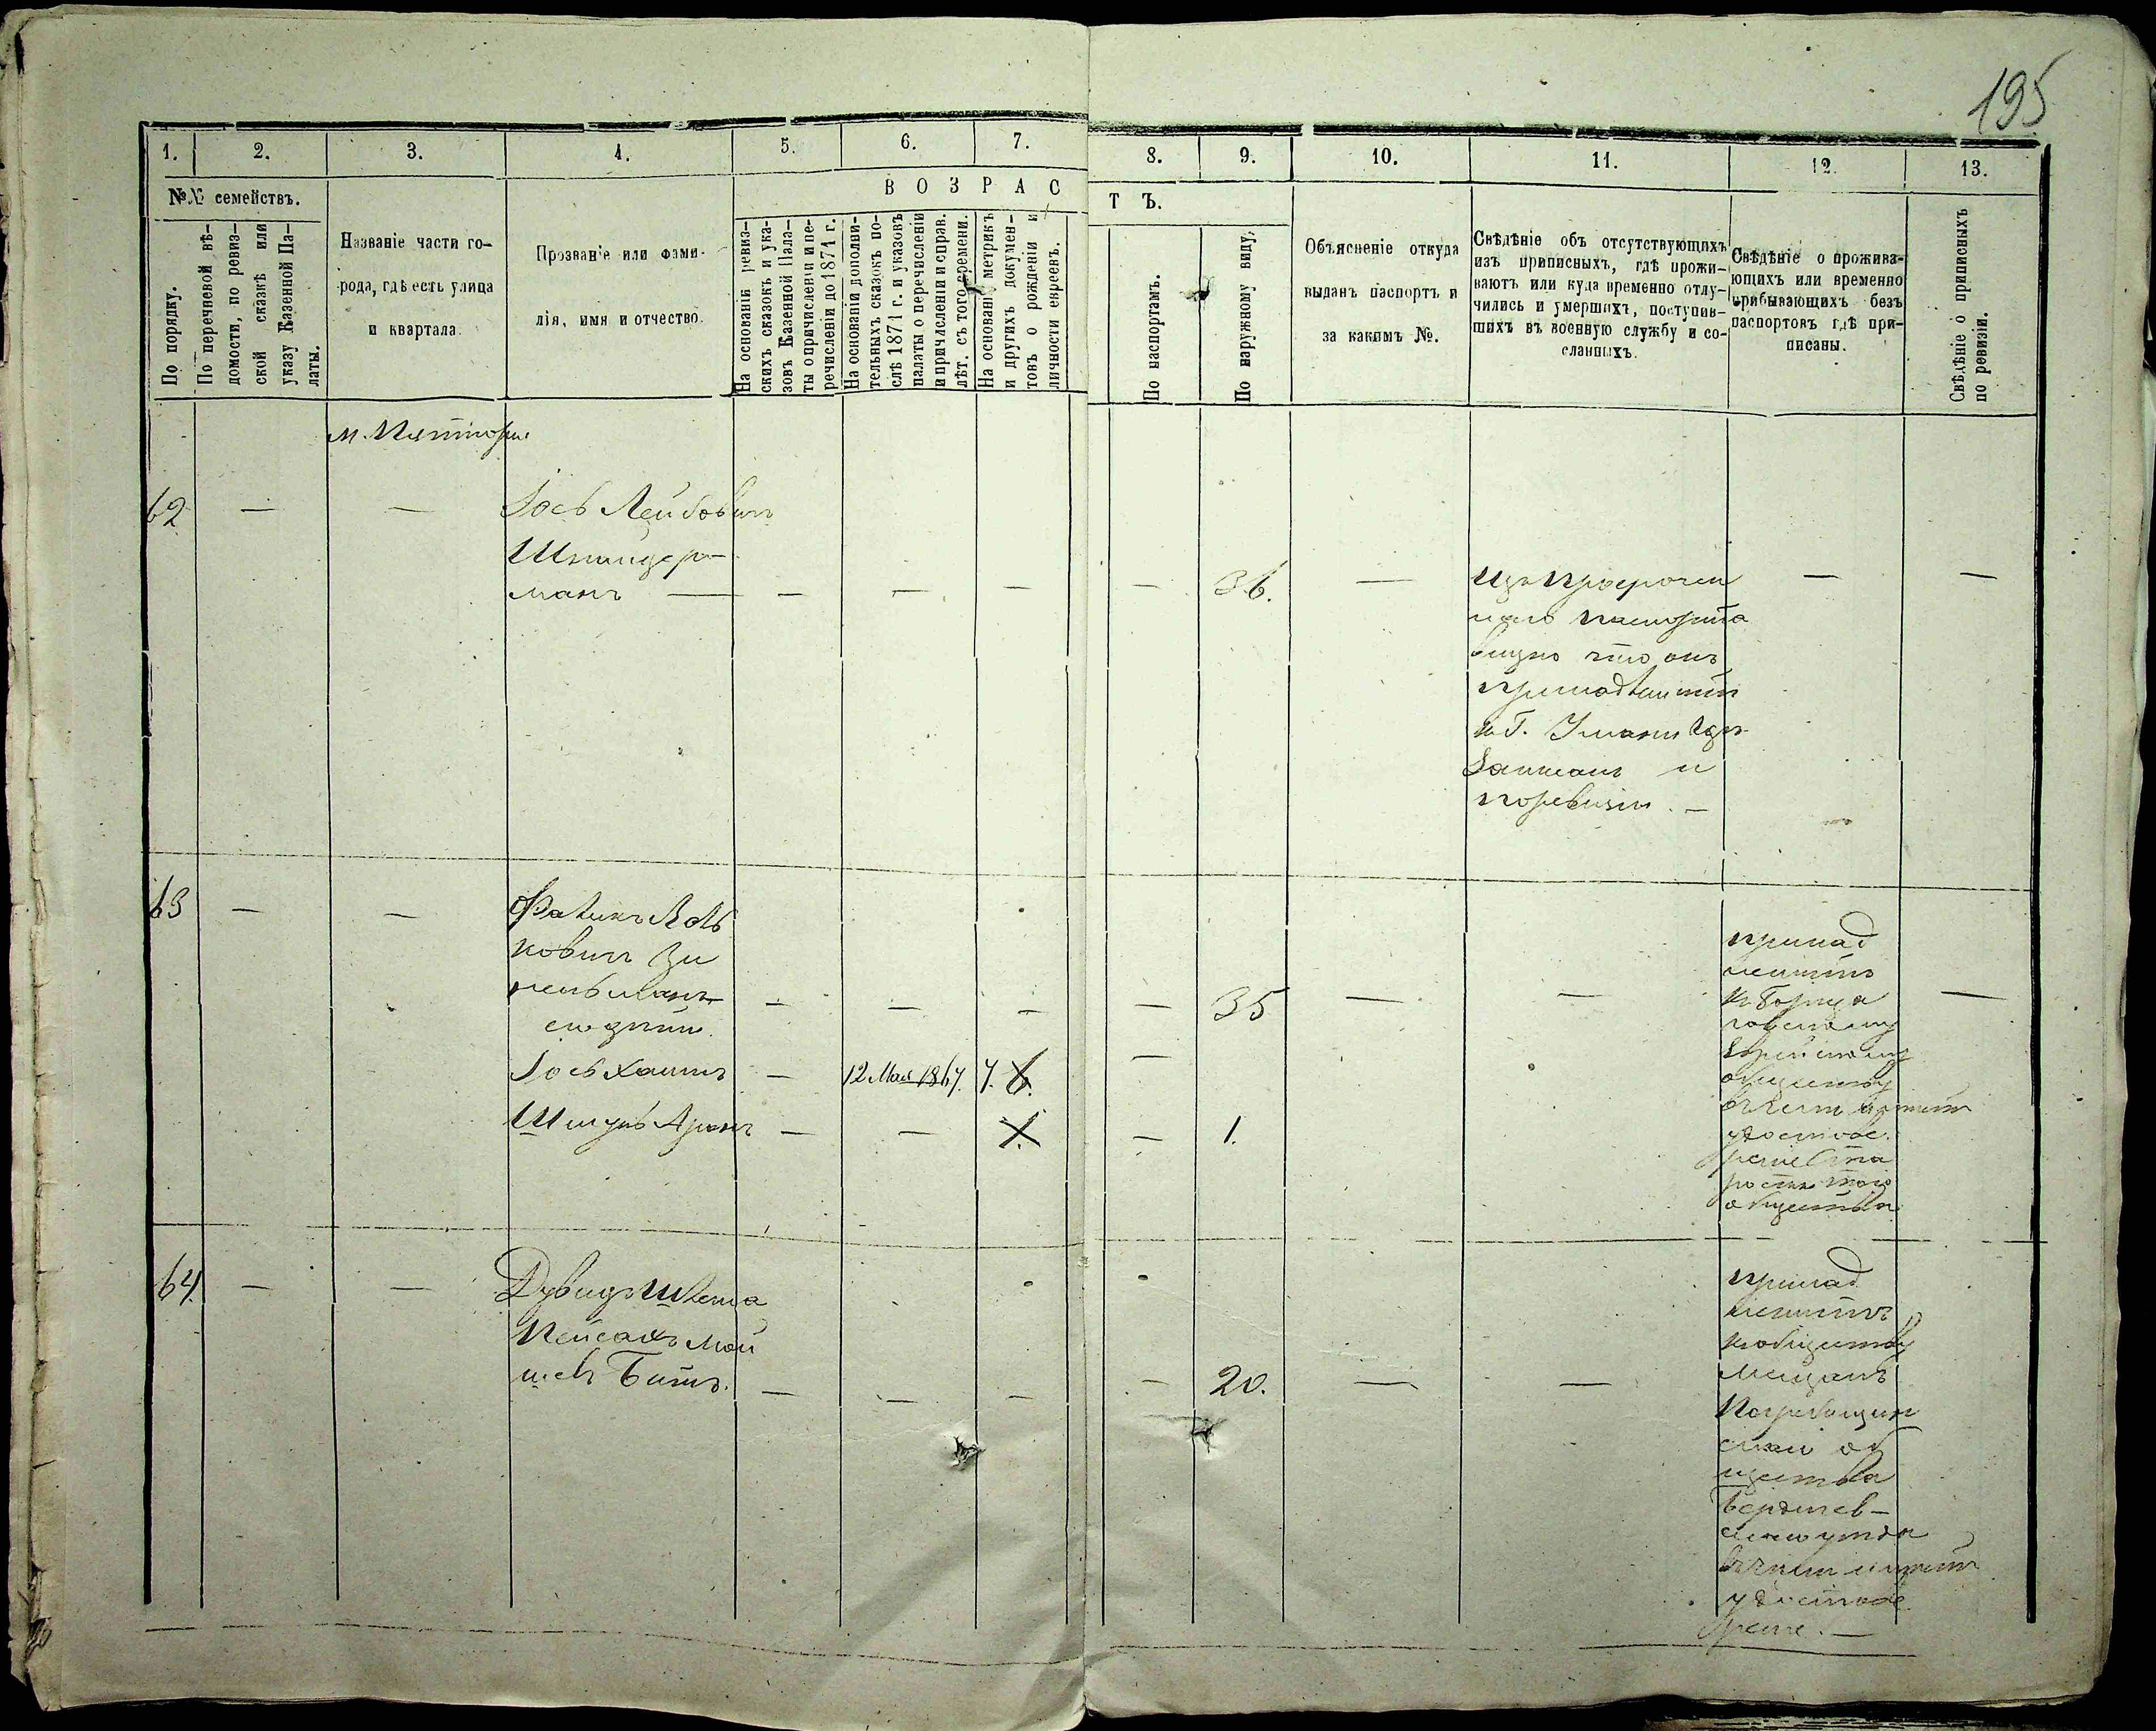 195
1. 2. 3. 4. 5. 6. 7. 8. 9. 10. 11. 12. 13.
№№ семействъ.
В О З Р А С Т Ъ.
По порядку.
По перечневой вѣ-
домости, по ревиз-
ской сказкѣ или
указу Казенной Па-
латы.
Названіе части го-
рода, гдѣ есть улица
и квартала.
Прозваніе или фами-
лія, имя и отчество.
На основаніи ревиз-
скихъ сказокъ и ука-
зовъ Казенной Пала-
ты о причисленіи и пе-
речисленіи до 1871 г.
На основаніи дополни-
тельныхъ сказокъ по-
слѣ 1871 г. и указовъ
палаты о перечисленіи
и причисленіи и справ.
лѣт. съ того времени.
На основаніи метрикъ
и другихъ докумен-
товъ о рожденіи и
личности евреевъ.
По паспортамъ.
По наружному виду.
Объясненіе откуда
выданъ паспортъ и
за какимъ №.
Свѣдѣніе объ отсутствующихъ
изъ приписныхъ, гдѣ прожи-
ваютъ или куда временно отлу-
чились и умершихъ, поступив-
шихъ въ военную службу и со-
сланныхъ.
Свѣдѣніе о прожива-
ющихъ или временно
прибывающихъ безъ
паспортовъ гдѣ при-
писаны.
Свѣдѣніе о приписныхъ
по ревизіи.
м. Пятигоры
62 — — Іось Лейбовичъ
Шнайдер-
манъ — — — — — 36. — — —
Изъ просрочен
наго паспорта
видно что онъ
принадлежитъ
к Г. Умани гдѣ
записанъ и
по ревизіи. —
63 — — Фавишъ Воль
ковичъ Зи
сельманъ — — — — 35 — — —
его дѣти.
Іось Хаимъ — 12 Мая 1867. 7. 6. —
Шмуль Аронъ — — 1. — 1.
принад
лежитъ
къ
еврейскому
обществу
въ чемъ имѣетъ
удостове.
реніе Ста
росты того
общества
64. — — Дувидъ Шлема
Пейсахъ Мой
шевъ Битъ. — — — — 20. — —
принад
лежитъ
къ обществу
мещанъ
Погребищен
скаго об
щества
Бердичев-
скаго уѣзда
въ чемъ имѣетъ
удостове
реніе. —